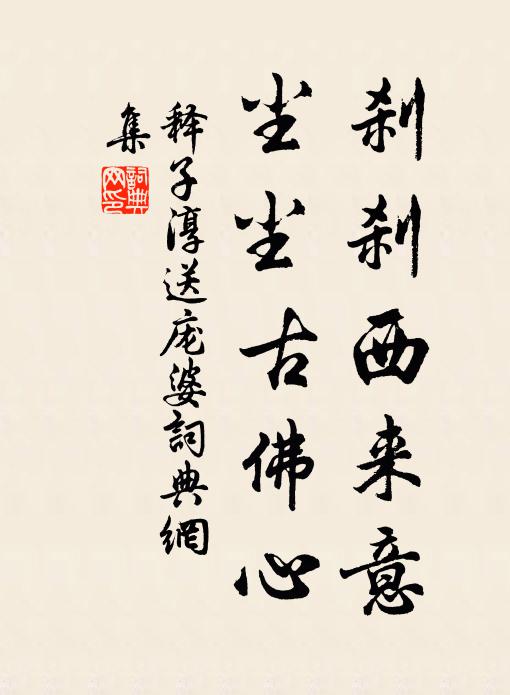 刹刹西来意
尘尘古佛心
释子淳送庞婆詞典網
集
詞典网印